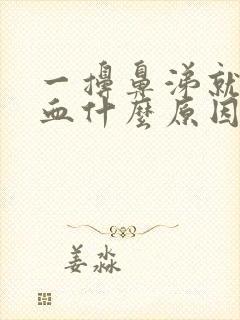 一擤鼻涕就
血什麼原因
姜淼